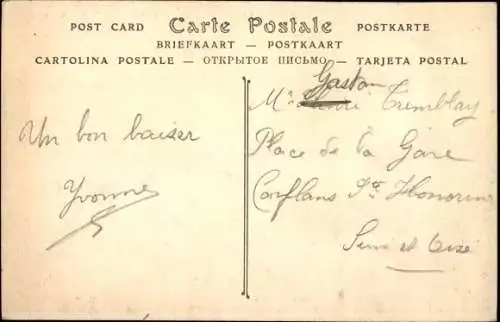 POST CARD Carte Postale POSTKARTE
BRIEFKAART — POSTKAART
CARTOLINA POSTALE — ОТКРЫТОЕ ПИСЬМО — TARJETA POSTAL
Un bon baiser
Yvonne
Gaston
Mr Tremblay
Place de la Gare
Conflans Ste Honorine
Seine et Oise